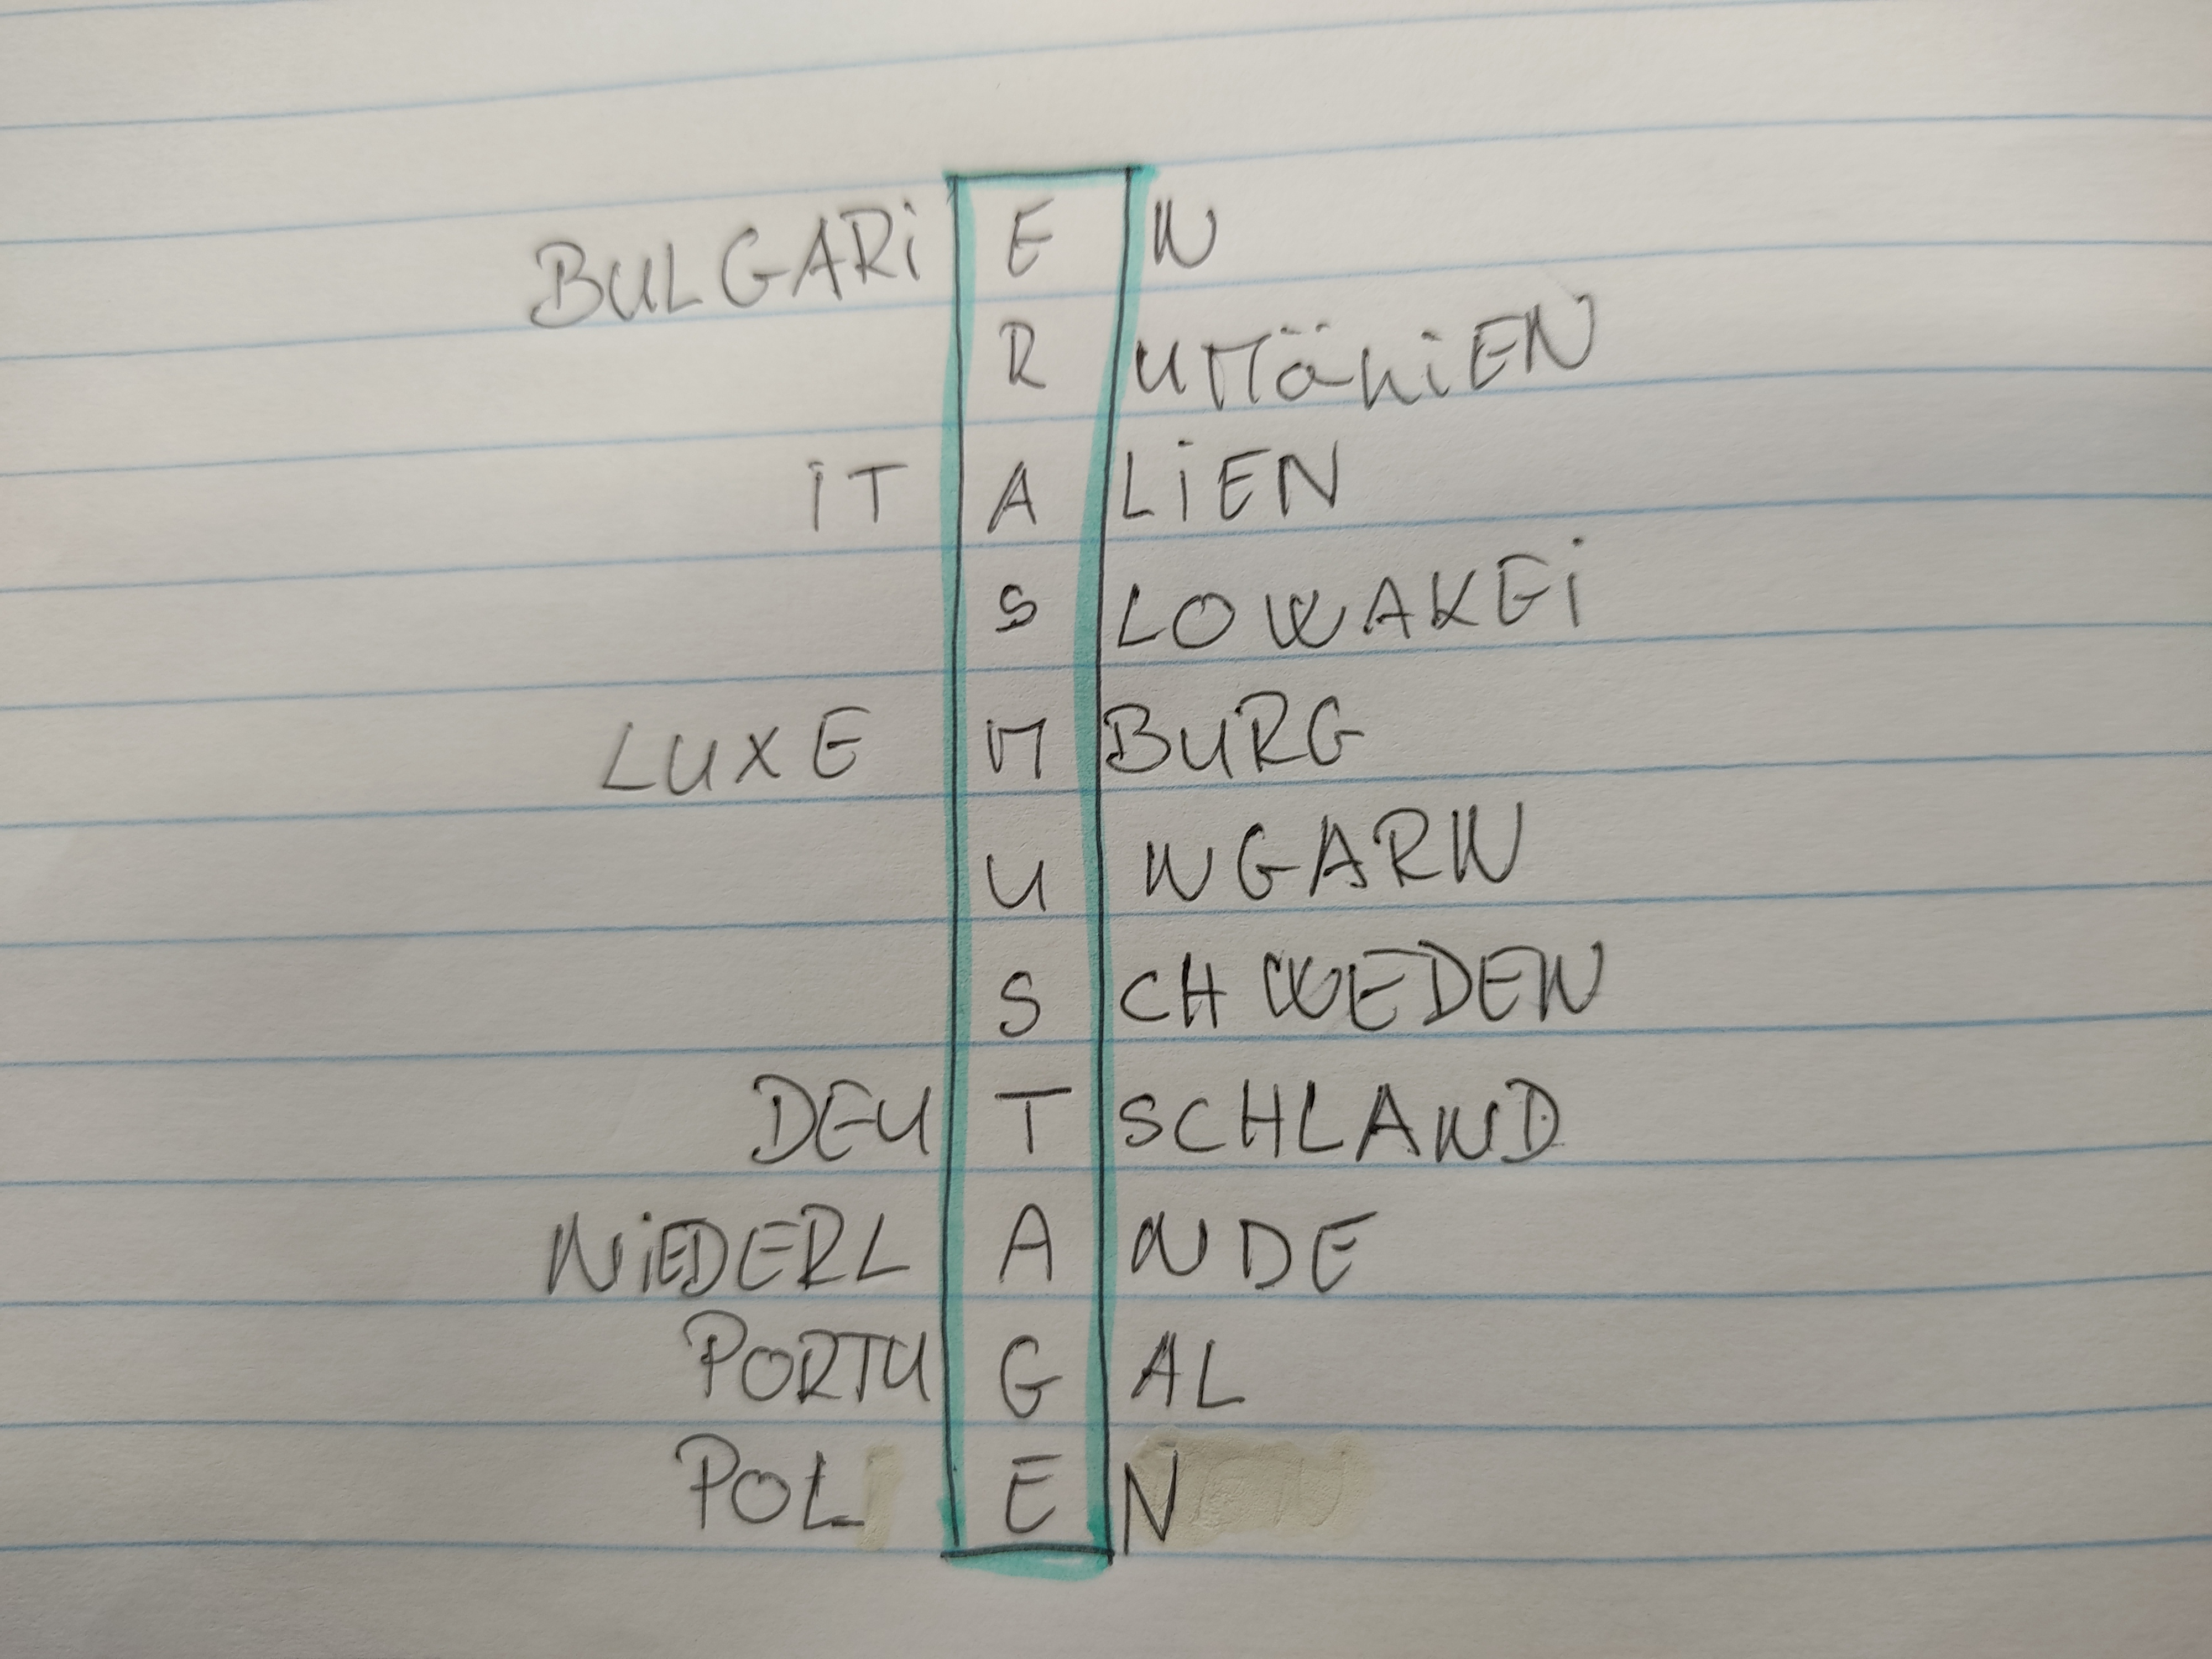 BULGARiEN
RUMäniEN
iTALiEN
SLOWAKEi
LUXEMBURG
UNGARN
SCHWEDEN
DEUTSCHLAND
NiEDERLANDE
PORTUGAL
POLEN